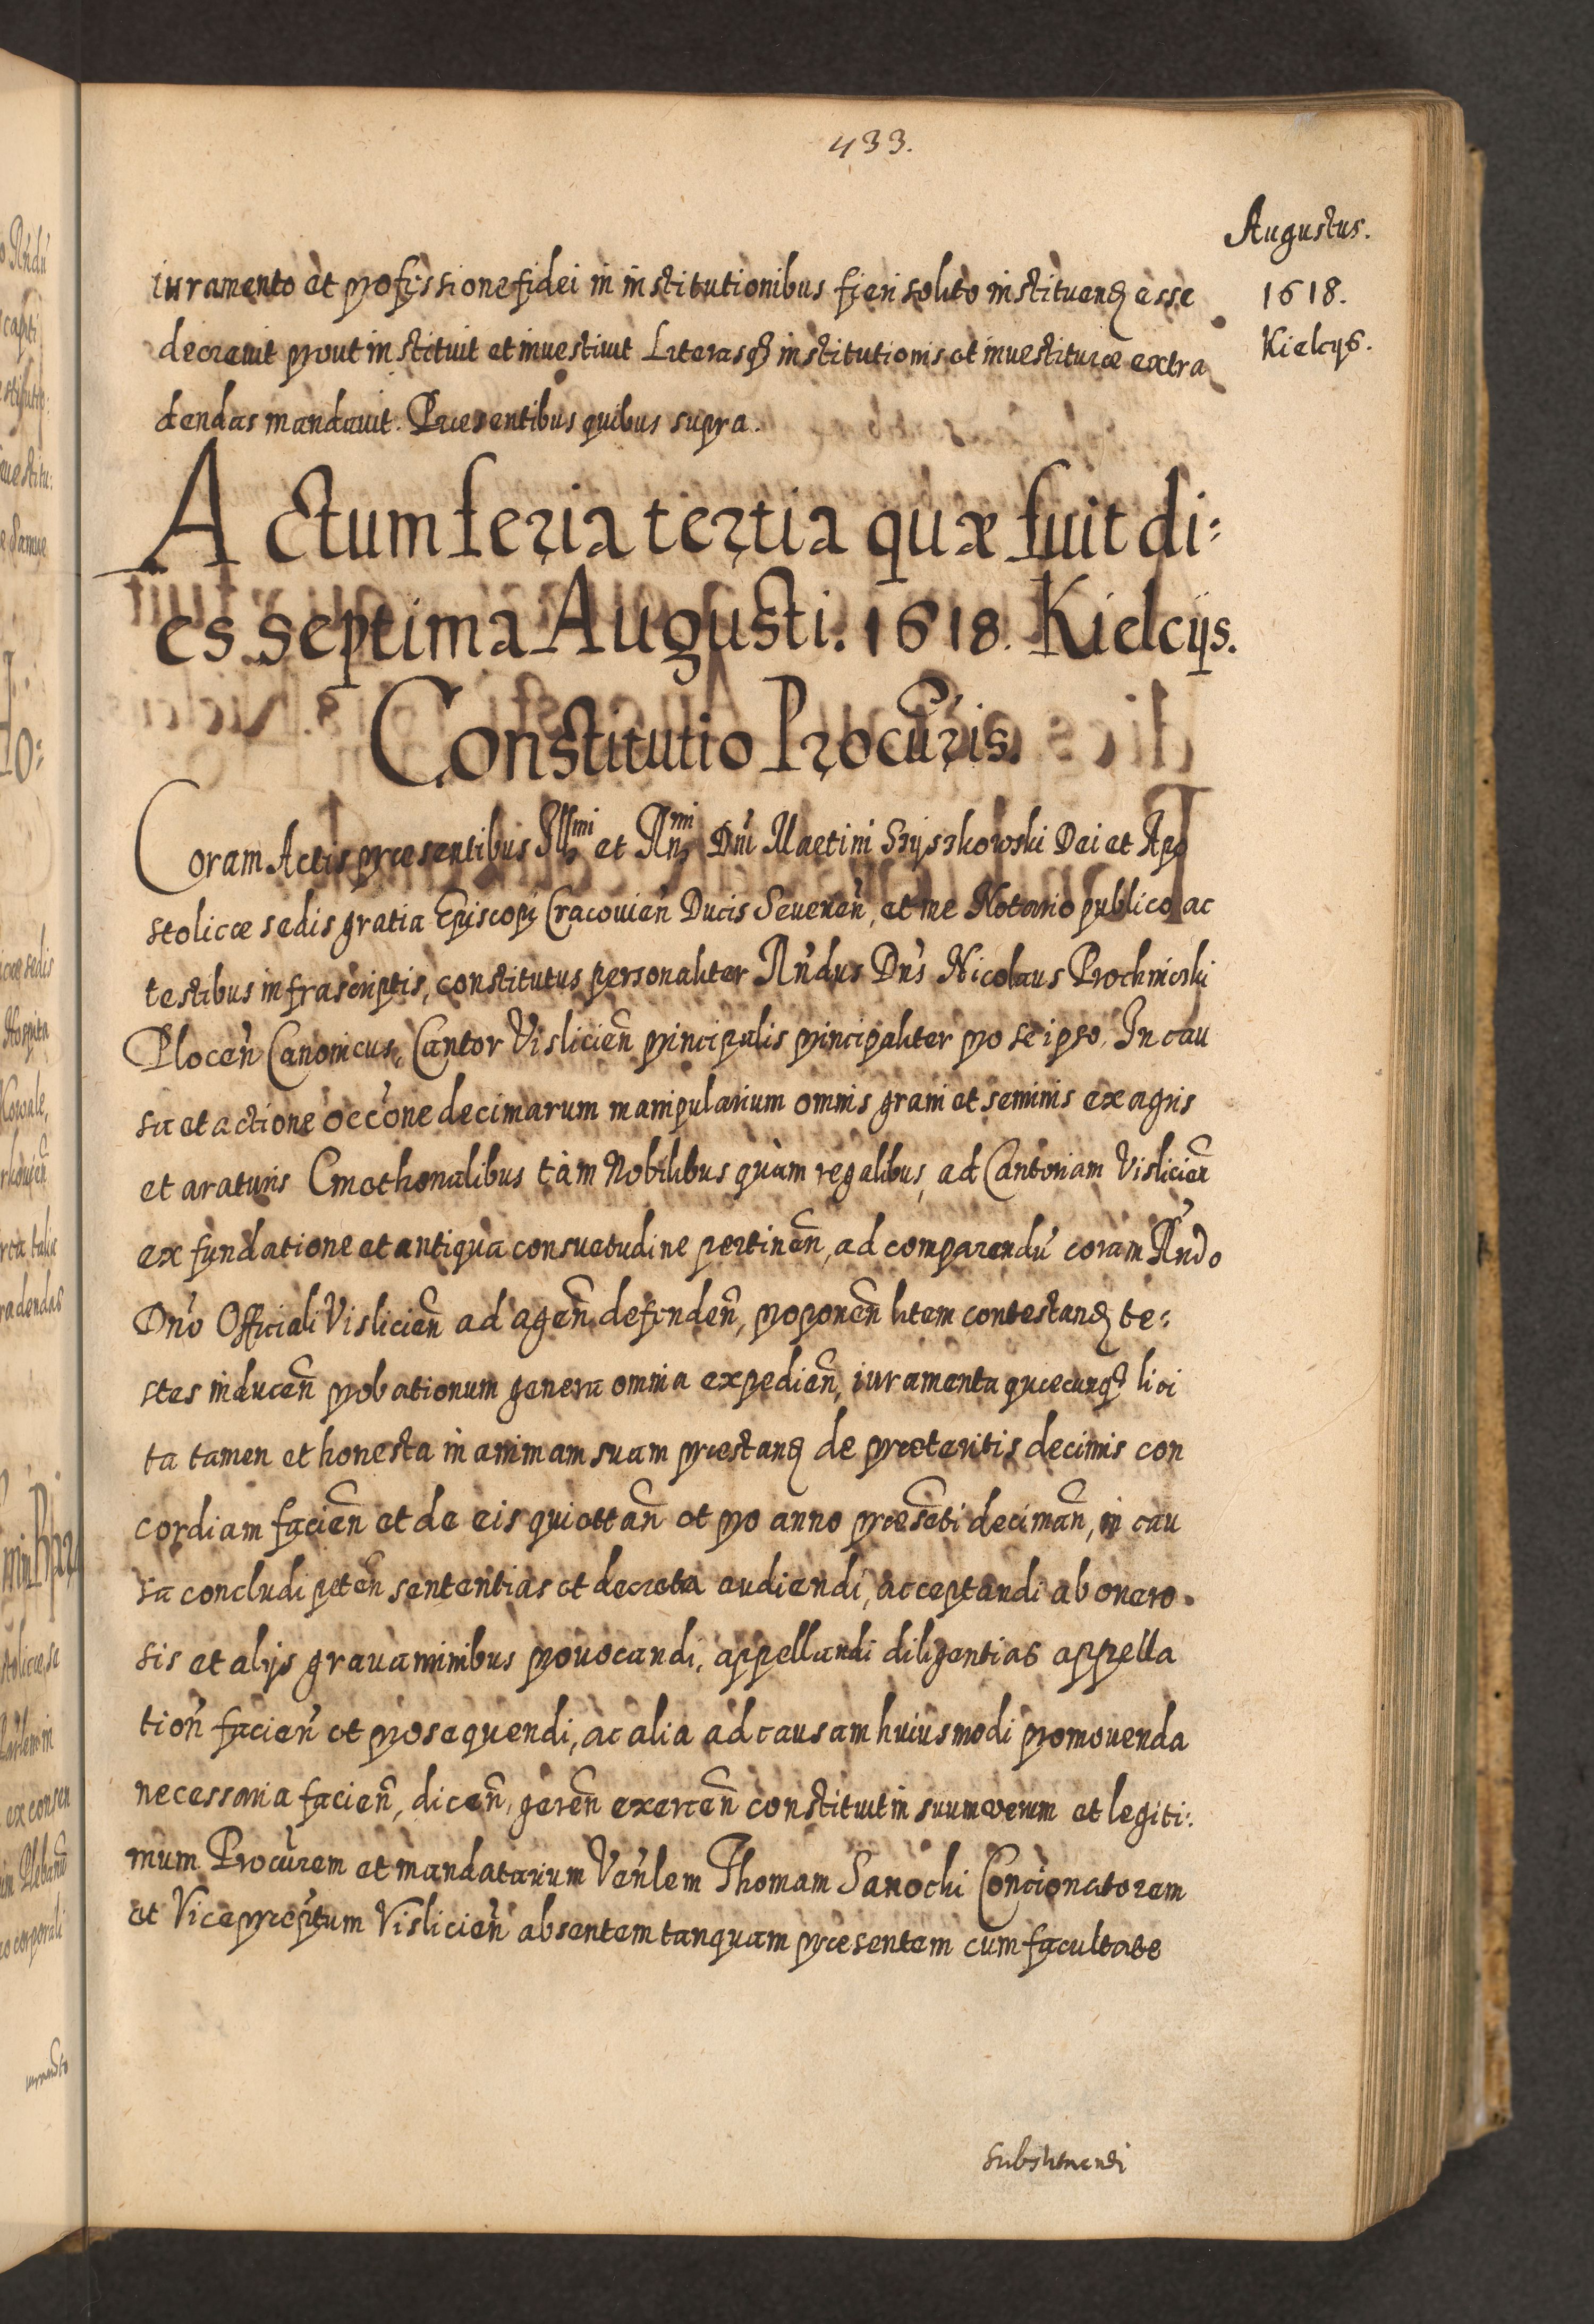 433.
Augustus.
1618.
Kielcijs.
iuramento et professione fidei in institutionibus fieri solito instituend esse
decrevit prout instituit et investivit Literasq institutionis et investiturae extra
dendas mandavit. Praesentibus quibus supra.
Actum feria tertia quae fuit di:
es septima Augusti. 1618. Kielcijs.
Constitutio Procuris.
Coram Actis praesentibus Illmi et Rndmi Dni Martini Szyszkowski Dei et Apo
stolicae sedis gratia Episcopi Cracovien Ducis Severien, et me Notario publico ac
testibus infrascriptis, constitutus personaliter Rndus Dns Nicolaus Prochnicski
Plocen Canonicus, Cantor Vislicien principalis principaliter pro se ipso, In cau
sa et actione occone decimarum manipularium omnis grani et seminis ex agris
et araturis Cmethonalibus tàm Nobilibus quàm regalibus, ad Cantoriam Vislicien
ex fundatione et antiqua consuetudine pertinen, ad comparendũ coram Rndo
Dno Officiali Vislicien ad agen defenden, proponen litem contestand te:
stes inducen probationum genera omnia expedien, iuramenta quaecunq lici
ta tamen et honesta in animam suam praestand de praeteritis decimis con
cordiam facien et de eis quiettan et pro anno praesenti deciman, in cau
sa concludi peten sententias et decreta audiendi, acceptandi ab onero
sis et alijs gravaminibus provocandi, appellandi diligentias appella
tion facien et prosequendi, ac alia ad causam huiusmodi promovenda
necessaria facien, dicen, geren exercen constituit in suum verum et legiti:
mum Procurem et mandatarium Venlem Thomam Sanocki Concionatorem
et Vicepraeptum Vislicien absentem tanquam praesentem cum facultate
substituendi